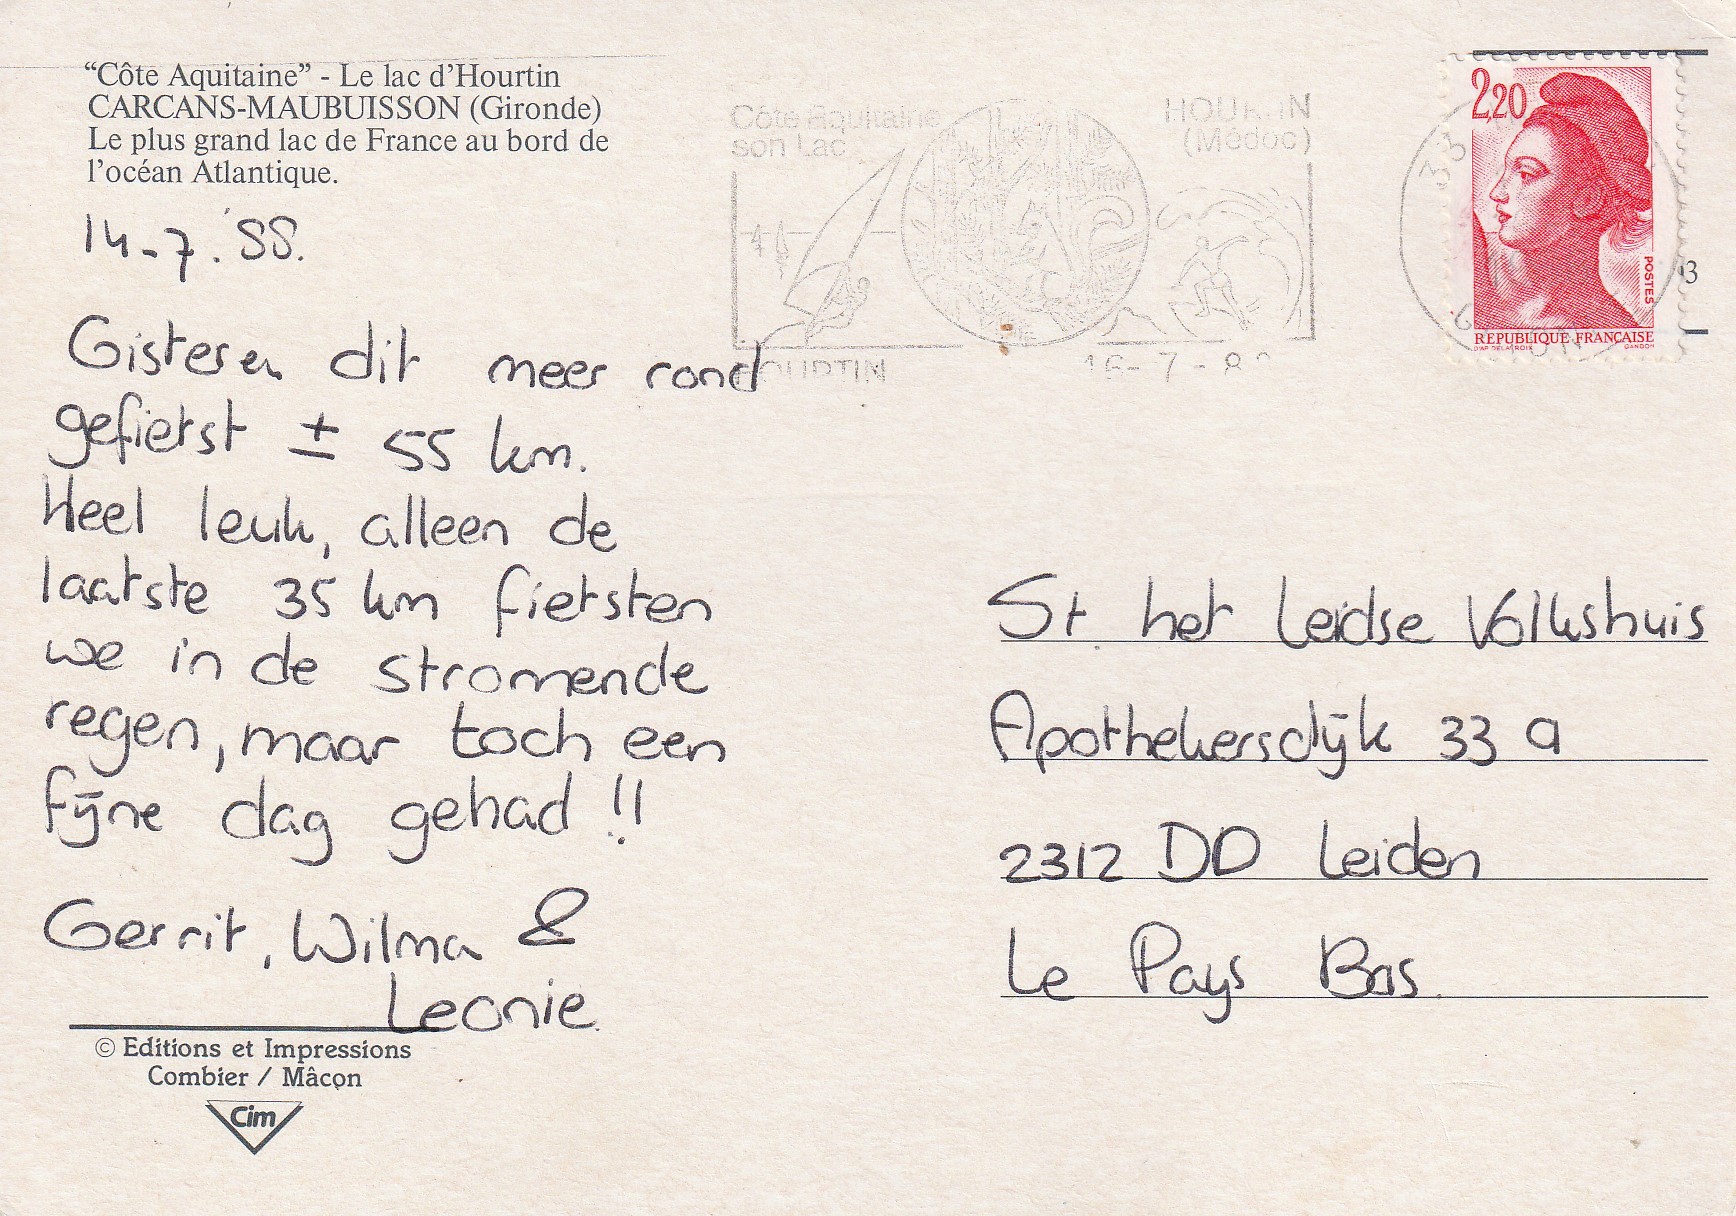 “Côte Aquitaine” - Le lac d’Hourtin
CARCANS-MAUBUISSON (Gironde)
Le plus grand lac de France au bord de
l’océan Atlantique.
14-7.'88.
Gisteren dit meer rond
gefietst ± 55 km.
Heel leuk, alleen de
laatste 35 km fietsten
we in de stromende
regen, maar toch een
fijne dag gehad !!
Gerrit, Wilma &
Leonie.
© Editions et Impressions
Combier / Mâcon
Cim
Côte Aquitaine
son Lac
HOURTIN
(Médoc)
HOURTIN
16-7-8
2,20
POSTES
REPUBLIQUE FRANÇAISE
GANDON
33
St. het Leidse Volkshuis
Apothekersdijk 33 a
2312 DD Leiden
Le Pays Bas.